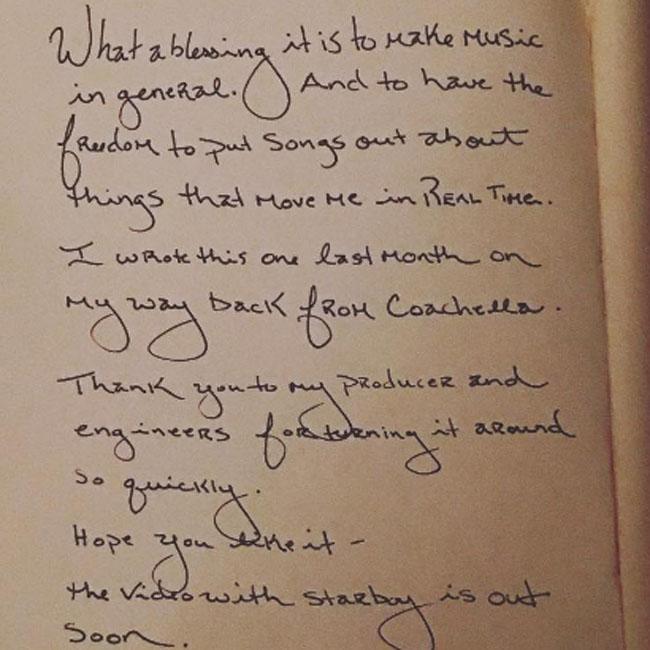 What a blessing it is to make music
in general. And to have the
freedom to put songs out about
things that move me in REAL TIME.
I wrote this one last month on
my way back from Coachella.
Thank you to my producer and
engineers for turning it around
so quickly.
Hope you like it -
the video with starboy is out
soon.